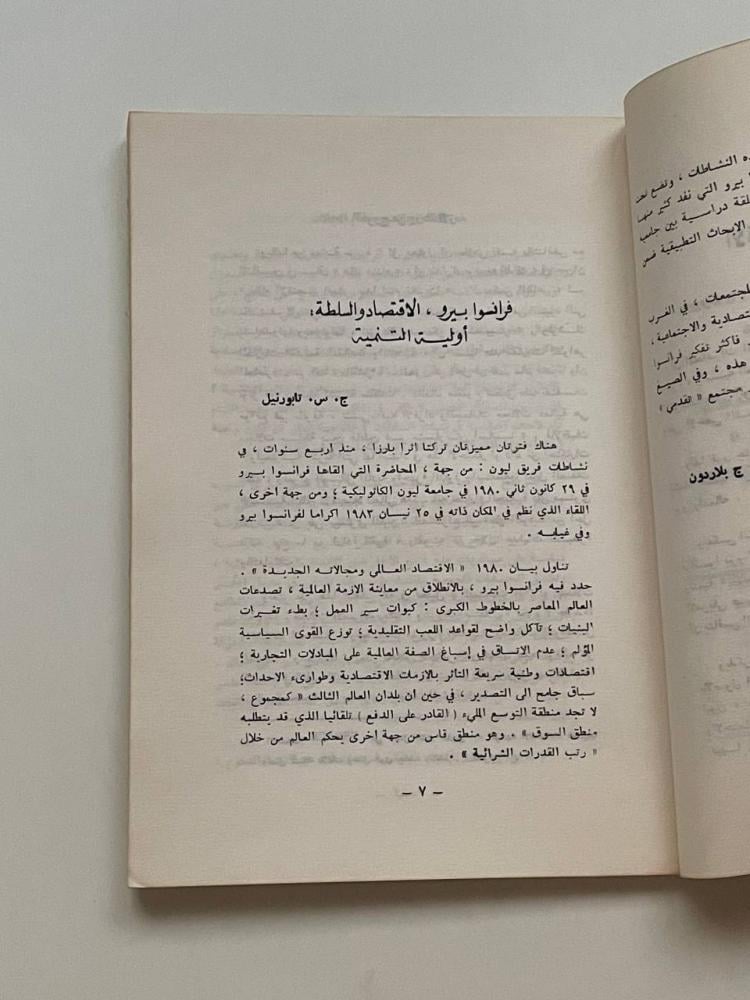 فرانسوا بيرو ، الاقتصاد والسلطة :
أولية التنمية
ج. س. تابورنيل
هناك فترتان مميزتان تركتا اثرا بارزا ، منذ اربع سنوات ، في
نشاطات فريق ليون : من جهة ، المحاضرة التي القاها فرانسوا بيرو
في ٢٩ كانون ثاني ١٩٨٠ في جامعة ليون الكاثوليكية ؛ ومن جهة اخرى ،
اللقاء الذي نظم في المكان ذاته في ٢٥ نيسان ١٩٨٣ اكراما لفرانسوا بيرو
وفي غيابه .
تناول بيان ١٩٨٠ « الاقتصاد العالمي ومجالاته الجديدة » .
حدد فيه فرانسوا بيرو ، بالانطلاق من معاينة الازمة العالمية ، تصدعات
العالم المعاصر بالخطوط الكبرى : كبوات سير العمل ؛ بطء تغيرات
البنيات ؛ تآكل واضح لقواعد اللعب التقليدية ؛ توزع القوى السياسية
المؤلم ؛ عدم الاتساق في إسباغ الصفة العالمية على المبادلات التجارية ؛
اقتصادات وطنية سريعة التأثر بالازمات الاقتصادية وطوارىء الاحداث؛
سباق جامح الى التصدير ، في حين ان بلدان العالم الثالث « كمجموع ،
لا تجد منطقة التوسع المليء ( القادر على الدفع ) تلقائيا الذي قد يتطلبه
منطق السوق » . وهو منطق قاس من جهة اخرى يحكم العالم من خلال
« رتب القدرات الشرائية » .
— ٧ —
ه النشاطات ، وتضع تحت
بيرو التي نفد كثير منها
لقة دراسية بين جامعية
الابحاث التطبيقية ضمن
لمجتمعات ، في الغرب
تصادية والاجتماعية ،
فاكثر تفكير فرانسوا
هذه ، وفي الصيغ
مجتمع « تقدمي »
ج بلاردون